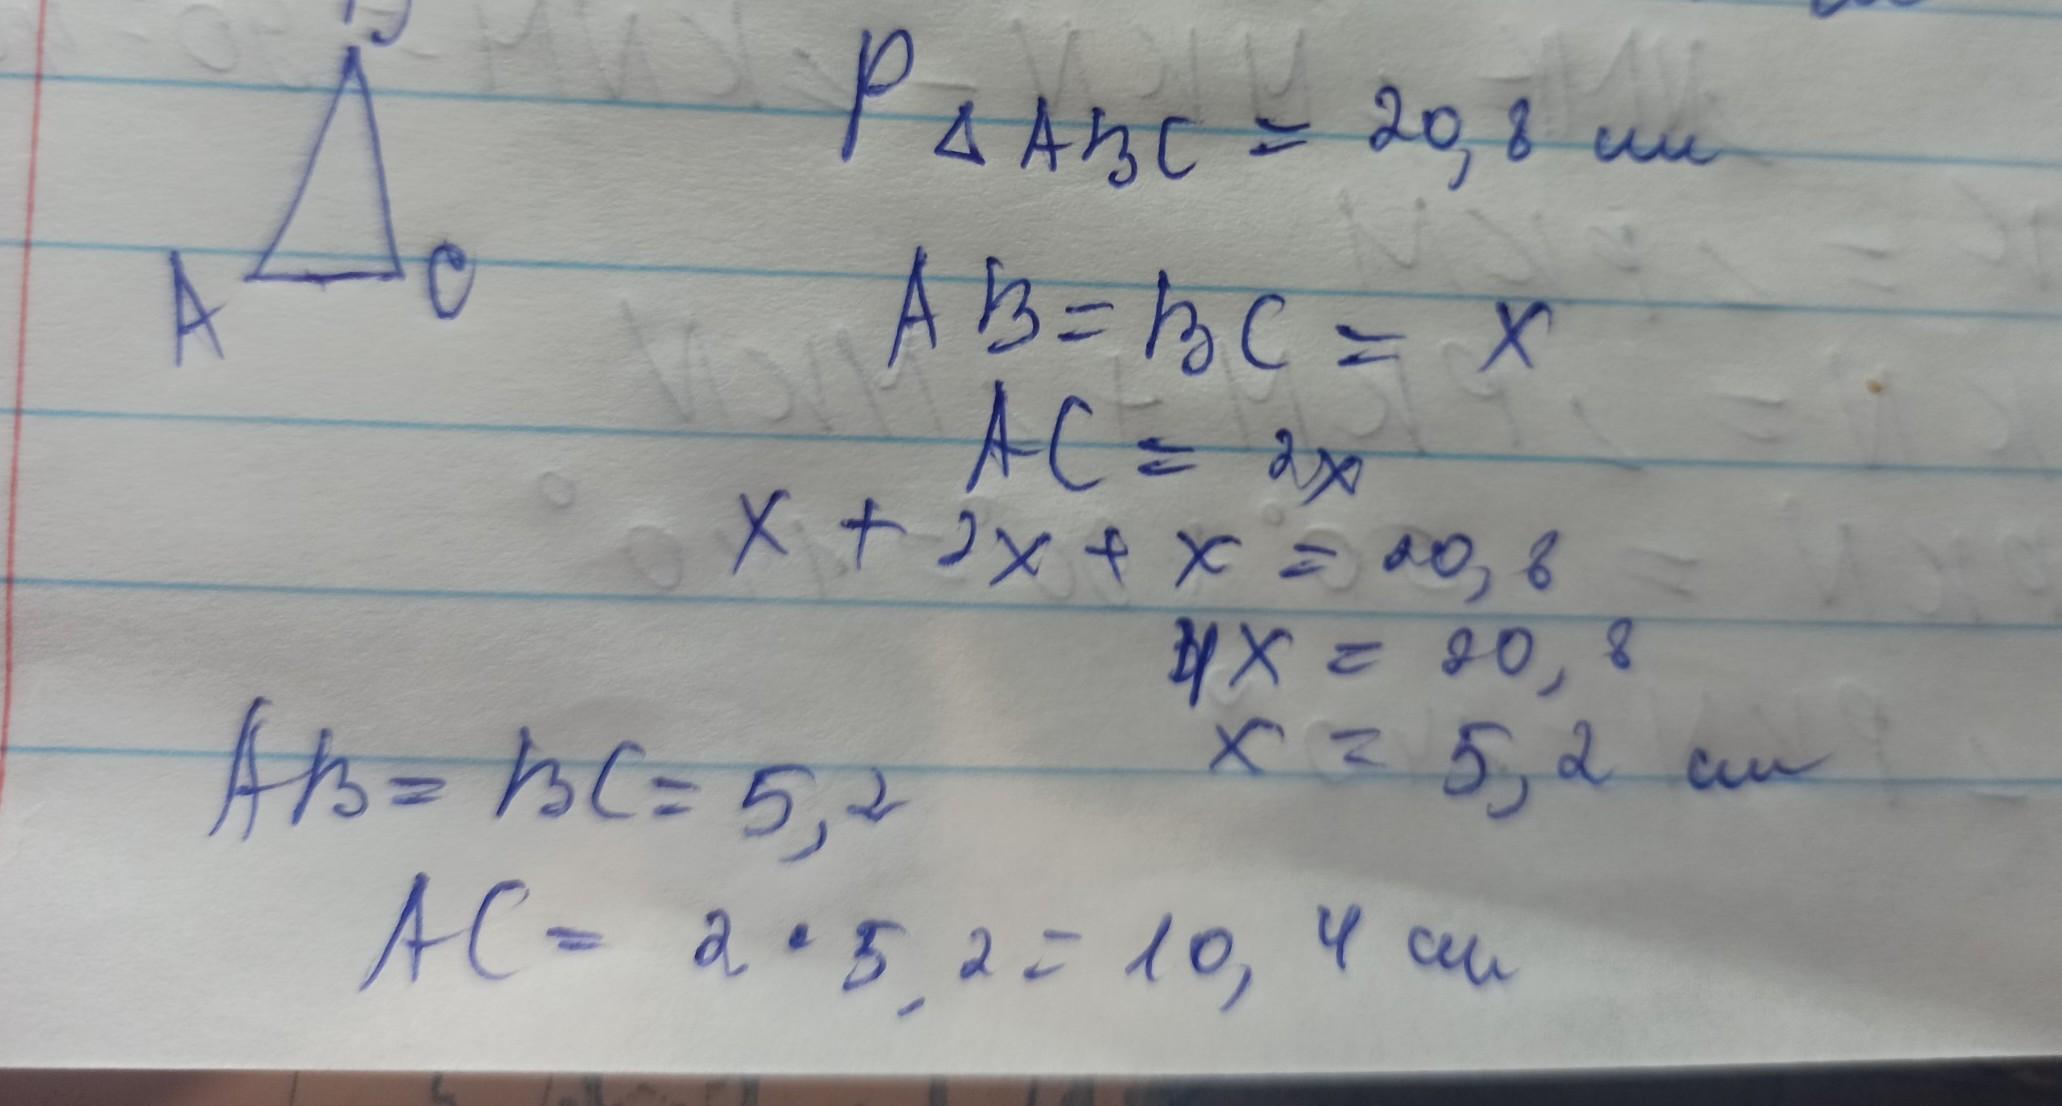 B
P △ ABC = 20,8 см
A C
AB = BC = x
AC = 2x
x + 2x + x = 20,8
4x = 20,8
x = 5,2 см
AB = BC = 5,2
AC = 2 · 5,2 = 10,4 см